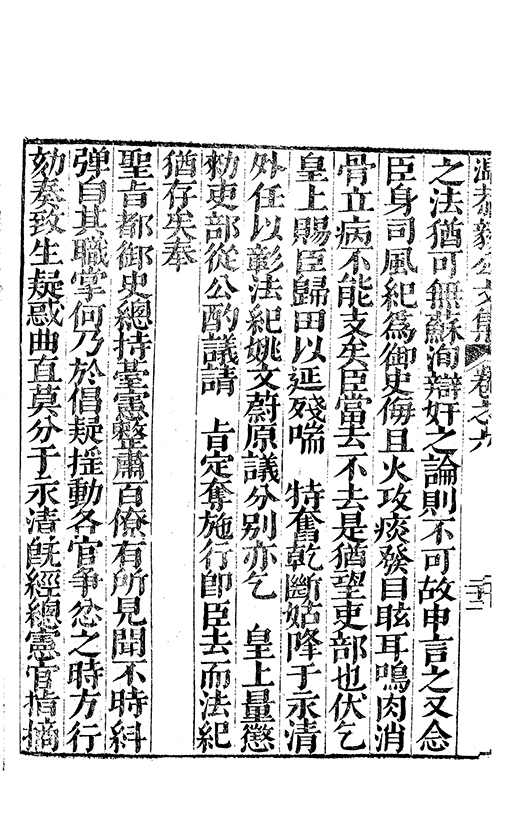 溫恭毅公文集 卷之六 二十二
之法猶可無蘇洵辯奸之論則不可故申言之又念
臣身司風紀爲御史侮且火攻痰發目眩耳鳴肉消
骨立病不能支矣臣當去不去是猶望吏部也伏乞
皇上賜臣歸田以延殘喘 特奮乾斷姑降于永清
外任以彰法紀姚文蔚原議分別亦乞 皇上量懲
勑吏部從公酌議請 旨定奪施行卽臣去而法紀
猶存矣奉
聖旨都御史總持臺憲整肅百僚有所見聞不時糾
彈自其職掌何乃於倡疑揺動各官爭忿之時方行
劾奏致生疑惑曲直莫分于永清旣經總憲官指摘